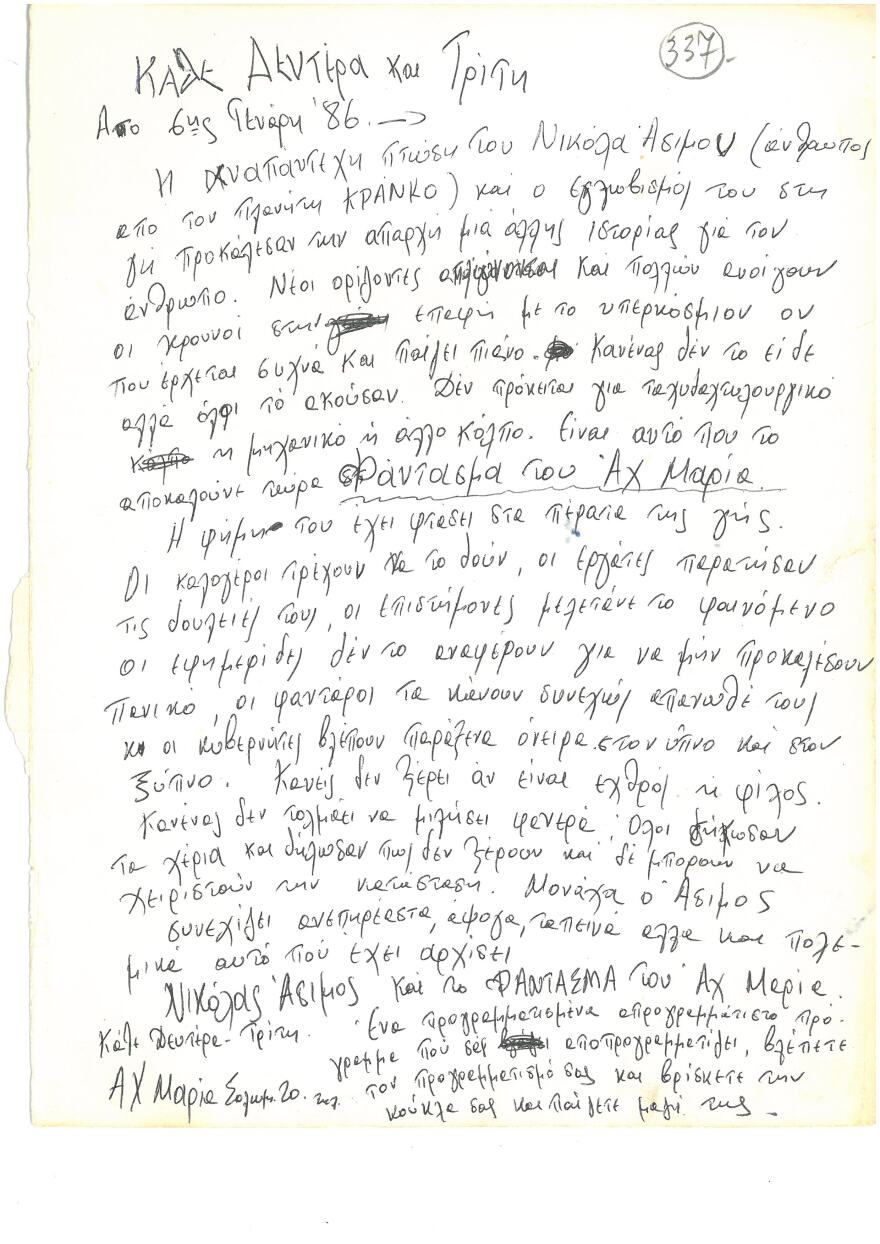 337
Κάθε Δευτέρα και Τρίτη
Απο 6ης Γενάρη '86. →
Η αναπάντεχη πτώση του Νικόλα Άσιμου (άνθρωπος
απο τον πλανήτη ΚΡΑΝΚΟ) και ο εγκλωβισμός του στη
γη προκάλεσαν την απαρχή μιά άλλης ιστορίας γιά τον
άνθρωπο. Νέοι ορίζοντες και πολλών ανοίγουν
οι κρουνοί στην επαφή με το υπερκόσμιον ον
που έρχεται συχνά και παίζει πιάνο. Κανένας δέν το είδε
αλλά όλοι το άκουσαν. Δέν πρόκειται για ταχυδαχτυλουργικό
ή μηχανικό ή άλλο κόλπο. Είναι αυτό που το
αποκαλούνε τώρα Φάντασμα του Αχ Μαρία.
Η φήμη του έχει φτάσει στα πέρατα της γής.
Οι καλόγεροι τρέχουν να το δούν, οι εργάτες παράτησαν
τις δουλειές τους, οι επιστήμονες μελετάνε το φαινόμενο
οι εφημερίδες δέν το αναφέρουν για να μήν προκαλέσουν
πανικό, οι φαντάροι τα κάνουν συνεχώς απανωθέ τους
κι οι κυβερνώντες βλέπουν παράξενα όνειρα στον ύπνο και στον
ξύπνο. Κανείς δεν ξέρει άν είναι εχθρός ή φίλος.
Κανένας δεν τολμάει να μιλήσει φανερά. Όλοι σήκωσαν
τα χέρια και δήλωσαν πως δεν ξέρουν και δέ μπορούν να
χειριστούν την κατάσταση. Μονάχα ο Άσιμος
συνεχίζει ανεπηρέαστα, άψογα, ταπεινά αλλα και πολε-
μικά αυτό πού έχει αρχίσει
Νικόλας Άσιμος και το ΦΑΝΤΑΣΜΑ του Αχ Μαρία.
Κάθε Δευτέρα - Τρίτη. Ένα προγραμματισμένα απρογραμμάτιστο πρό-
γραμμα πού σας αποπρογραμματίζει, βλέπετε
ΑΧ Μαρία Σολωμ. 20. τηλ. τον προγραμματισμό σας και βρίσκετε την
κούκλα σας και παίζετε μαζί της -